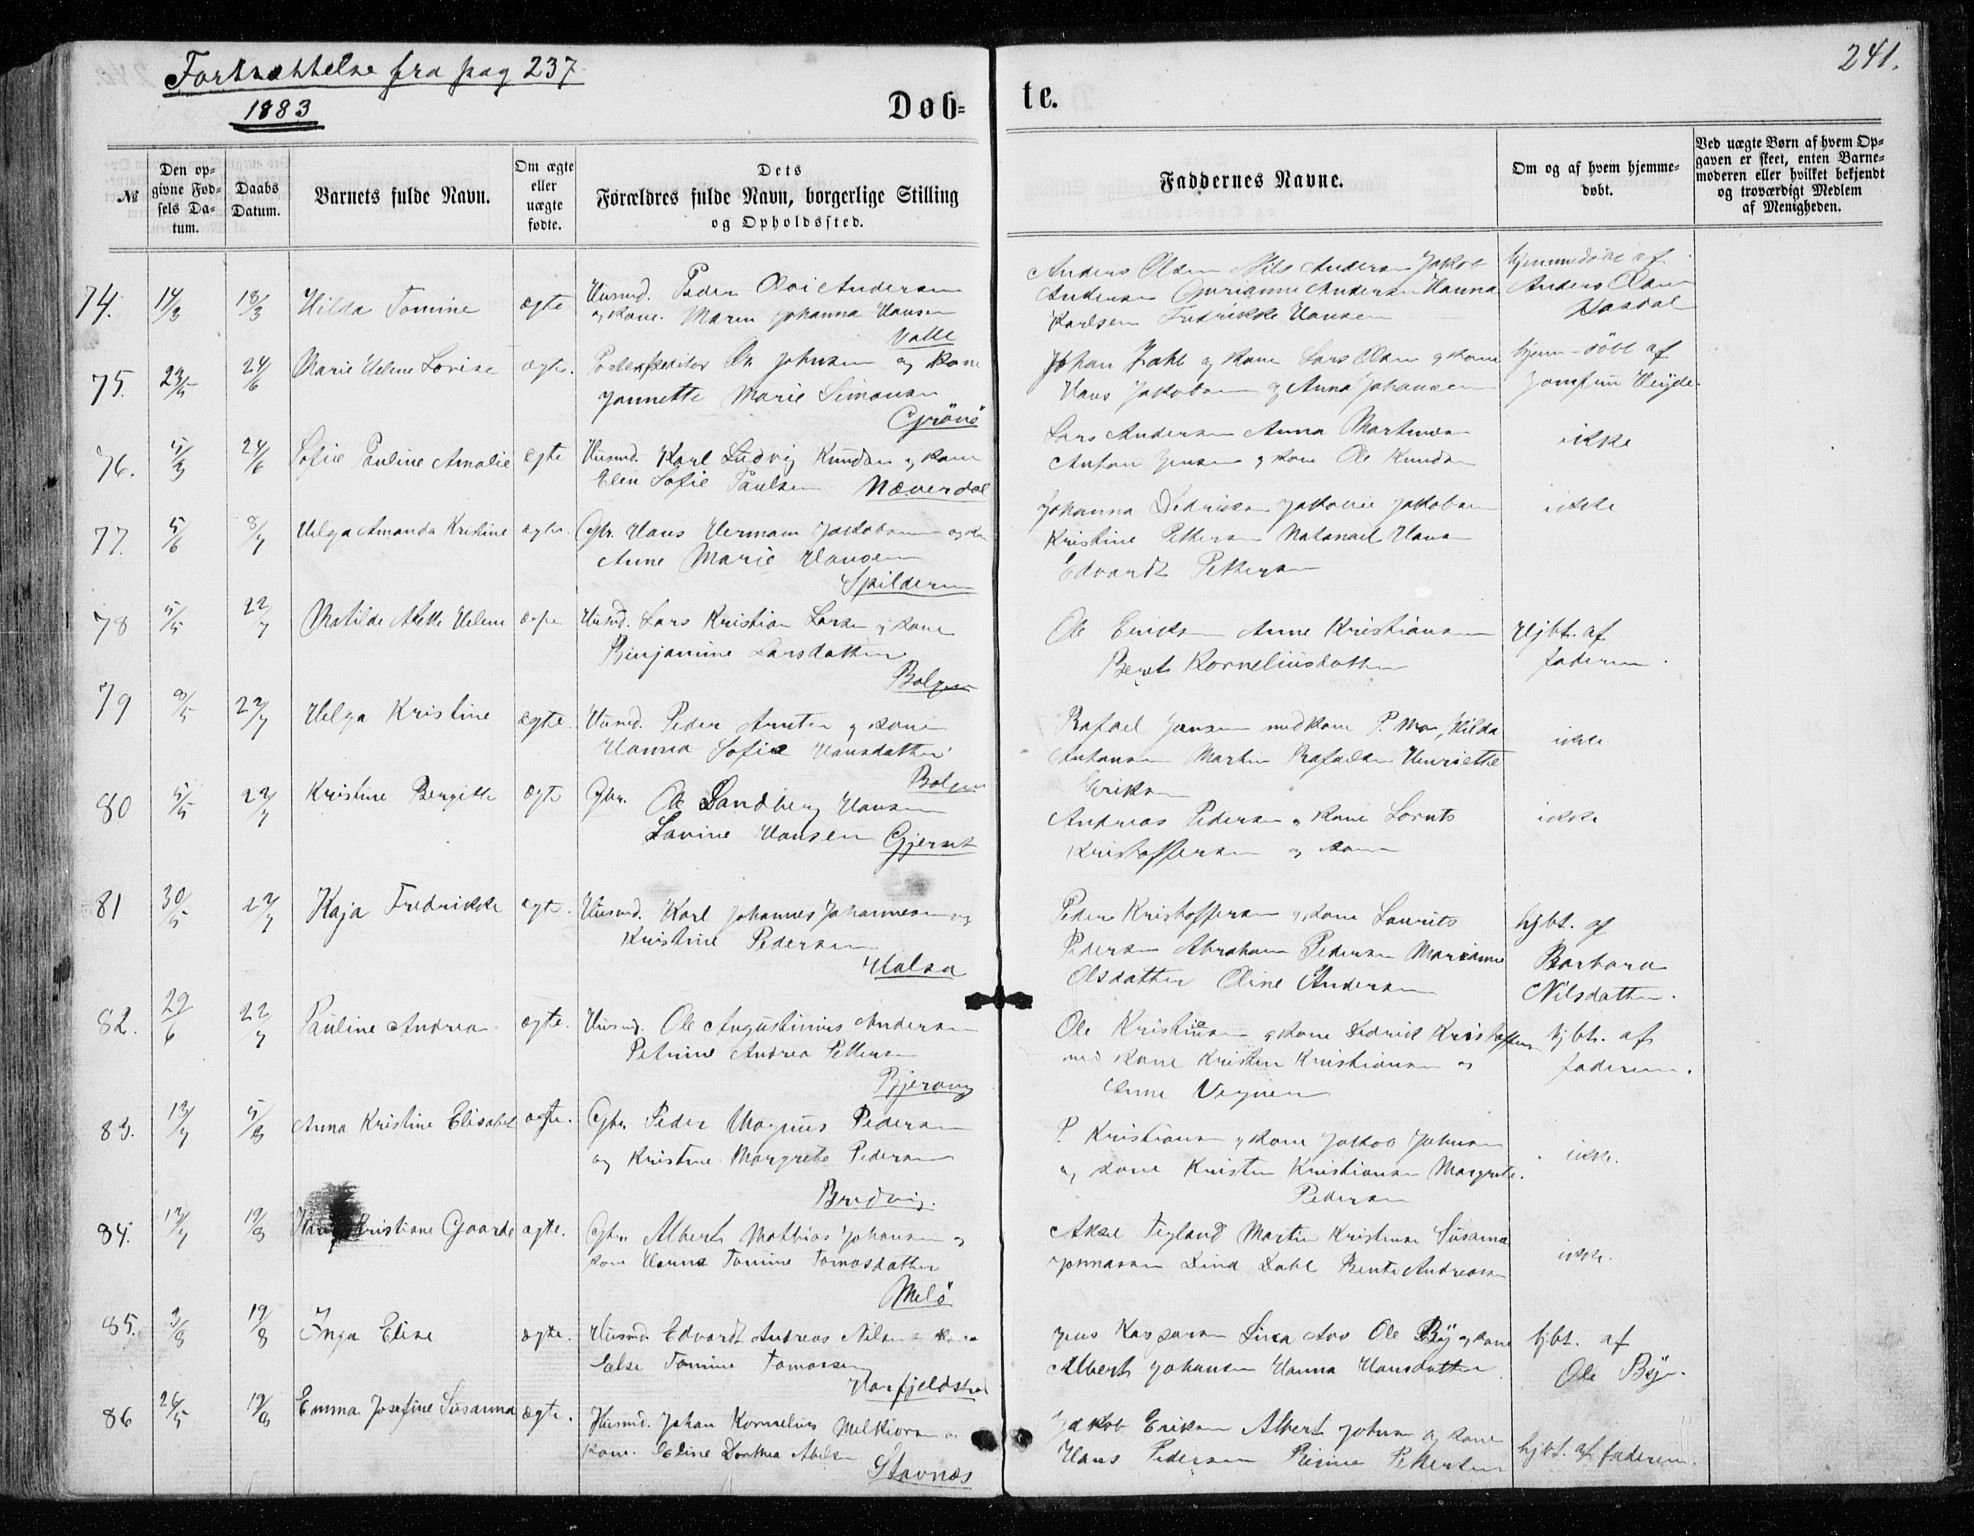 Fortsættelse fra pag 237
1883
241.
Døb=
te.
№
Den op-
givne Fød-
sels Da-
tum.
Daabs
Datum.
Barnets fulde Navn.
Om ægte
eller
uægte
fødte.
Dets
Forældres fulde Navn, borgerlige Stilling
og Opholdssted.
Faddernes Navne.
Om og af hvem hjemme-
døbt.
Ved uægte Børn af hvem Op-
gaven er skeet, enten Barne-
moderen eller hvilket bekjendt
og troværdigt Medlem
af Menigheden.
74. 14/3 18/3 Hilda Tomine ægte
Husmd. Peder Andersen
og kone. Maren Johanna Hansen
Valle
Anders Olsen Nils Andersen Jakob
Andersen Andersen Hanna
Karlsen Fredrikke Hansen
hjemmedøbt af
Anders Olsen
75. 23/5 24/6 Marie Helene Lovise ægte.
Postexpeditør Johnsen og kone
Jannette Marie Simonsen
Grönö
Johan Dahl og kone Lars Olsen og kone
Hans Jakobsen og Anna Johansen
hjem-döbt af
Jomfru
76. 24/6 Sofie Pauline Amalie ægte
Husmd. Karl Ludvig Knudsen og kone
Elen Sofie Paulsen Næverdal
Lars Andersen Anna Martinsen
Anton Jensen og kone Ole Knudsen
ikke
77. 5/6 8/7 Helga Amanda Kristine ægte
Gbr. Hans Herman Jakobsen og kone
Anne Marie Hansen
Spilderen
Johanna Didriksen Jakobsen
Kristine Pettersen Natanael Hansen
Edvardt Pettersen
ikke
78 5/5 22/7 Matilde Helene
Husmd. Lars Kristian Larsen og kone
Benjamine Larsdatter
Bolgen
Ole Eriksen Anne Kristiansen
Beret Korneliusdatter
Hjbt. af
faderen.
79 8/5 22/7 Helga Kristine ægte.
Husmd. Peder og kone
Hanna Sofie Hansdatter
Bolgen
Rafael Jensen med kone Hilda
Antonsen Martin Rafaelsen Henriette
Eriksen
ikke
80 5/5 22/7 Kristine Bergitte ægte
Gbr. Ole Sandberg Hansen
Lovine Hansen Gjerset
Andreas Pedersen og kone Lornts
Kristoffersen og kone
ikke
81 30/5 22/7 Kaja Fredrikke ægte.
Husmd. Karl Johannes Johannesen og
Kristine Pedersen
Halsa
Peder Kristoffersen og kone Laurits
Pedersen Abraham Pedersen Marianne
Olsdatter Oline Andersen
hjbt. af
Barbara
Nilsdatter.
82. 29/6 22/7 Pauline Andrea ægte.
Husmd. Ole Augustinius Andersen
Petrine Andrea Pettersen
Bjerang
Ole Kristiansen og kone Didrick Kristoffersen
med kone Kristen Kristiansen og
Anne
hjbt. af
faderen.
83. 13/7 5/8 Anna Kristine Elisabet ægte.
Gbr. Peder Magnus Pedersen
og Kristine Margrete Pedersen
Bredvig.
P. Kristiansen og kone Jakob Johnsen
og kone Kristen Kristiansen Margrete
Pedersen
ikke.
84. 19/8 Kristiane Gaarde ægte.
Gbr. Albert Mathias Johansen og
kone Hanna Tomine Tomasdatter
Melö
Aksel Martin Kristensen Susanna
Jonnassen Dina Dahl Bente Andreasen
ikke.
85. 3/8 19/8 Inga Eline ægte.
Husmd. Edvardt Andreas Nilsen kone
Else Tomine Tomassen
Jens Kaspersen Ole By og kone
Albert Johansen Hanna Hansdatter
hjbt. af
Ole By.
86 26/5 19/8 Emma Josefine Susanna ægte.
Husmd. Johan Kornelius Melkiorsen og
kone. Eline Dorthea Abelsen
Stavnæs
Jakob Eriksen Albert Johnsen og kone
Hans Pedersen Pettersen
hjbt. af faderen.